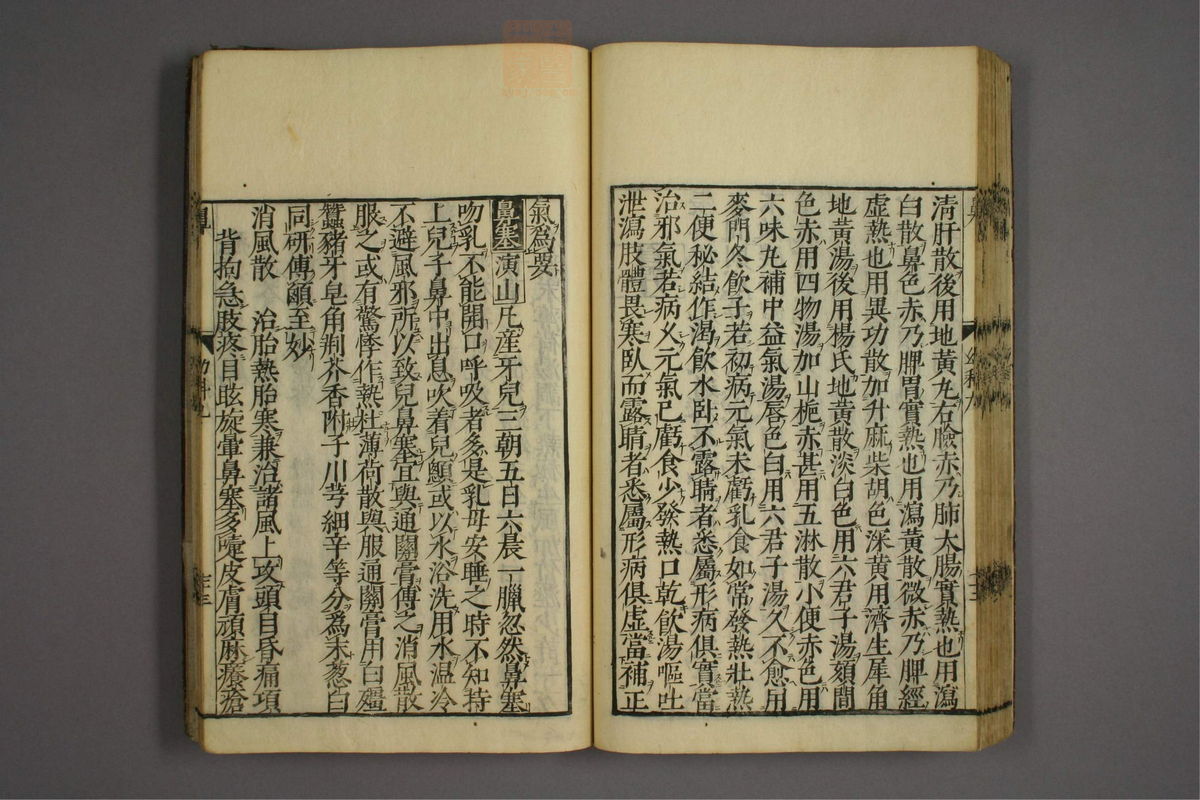 清肝散後用地黃丸右臉赤乃肺大腸實熱也用瀉
白散鼻色赤乃脾胃實熱也用瀉黃散微赤乃脾經
虛熱也用異功散加升麻柴胡色深黃用濟生犀角
地黃湯後用楊氏地黃散淡白色用六君子湯頦間
色赤用四物湯加山梔赤甚用五淋散小便赤色用
六味丸補中益氣湯唇色白用六君子湯久不愈用
麥門冬飲子若初病元氣未虧乳食如常發熱壯熱
二便秘結作渴飲水臥不露睛者悉屬形病俱實當
治邪氣若病久元氣已虧食少發熱口乾飲湯嘔吐
泄瀉肢體畏寒臥而露睛者悉屬形病俱虛當補正
氣爲要
鼻塞 演山 凡産牙兒三朝五日六晨一臘忽然鼻塞
吻乳不能開口呼吸者多是乳母安睡之時不知持
上兒子鼻中出息吹着兒顖或以水浴洗用水温冷
不避風邪所以致兒鼻塞宜與通關膏傅之消風散
服之或有驚悸作熱杜薄荷散與服通關膏用白殭
蠶豬牙皂角荆芥香附子川芎細辛等分爲末葱白
同研傅顖至妙
消風散 治胎熱胎寒兼治諸風上攻頭目昏痛項
背拘急肢疼目眩旋暈鼻塞多嚏皮膚頑麻癢瘡
鼻
幼科九